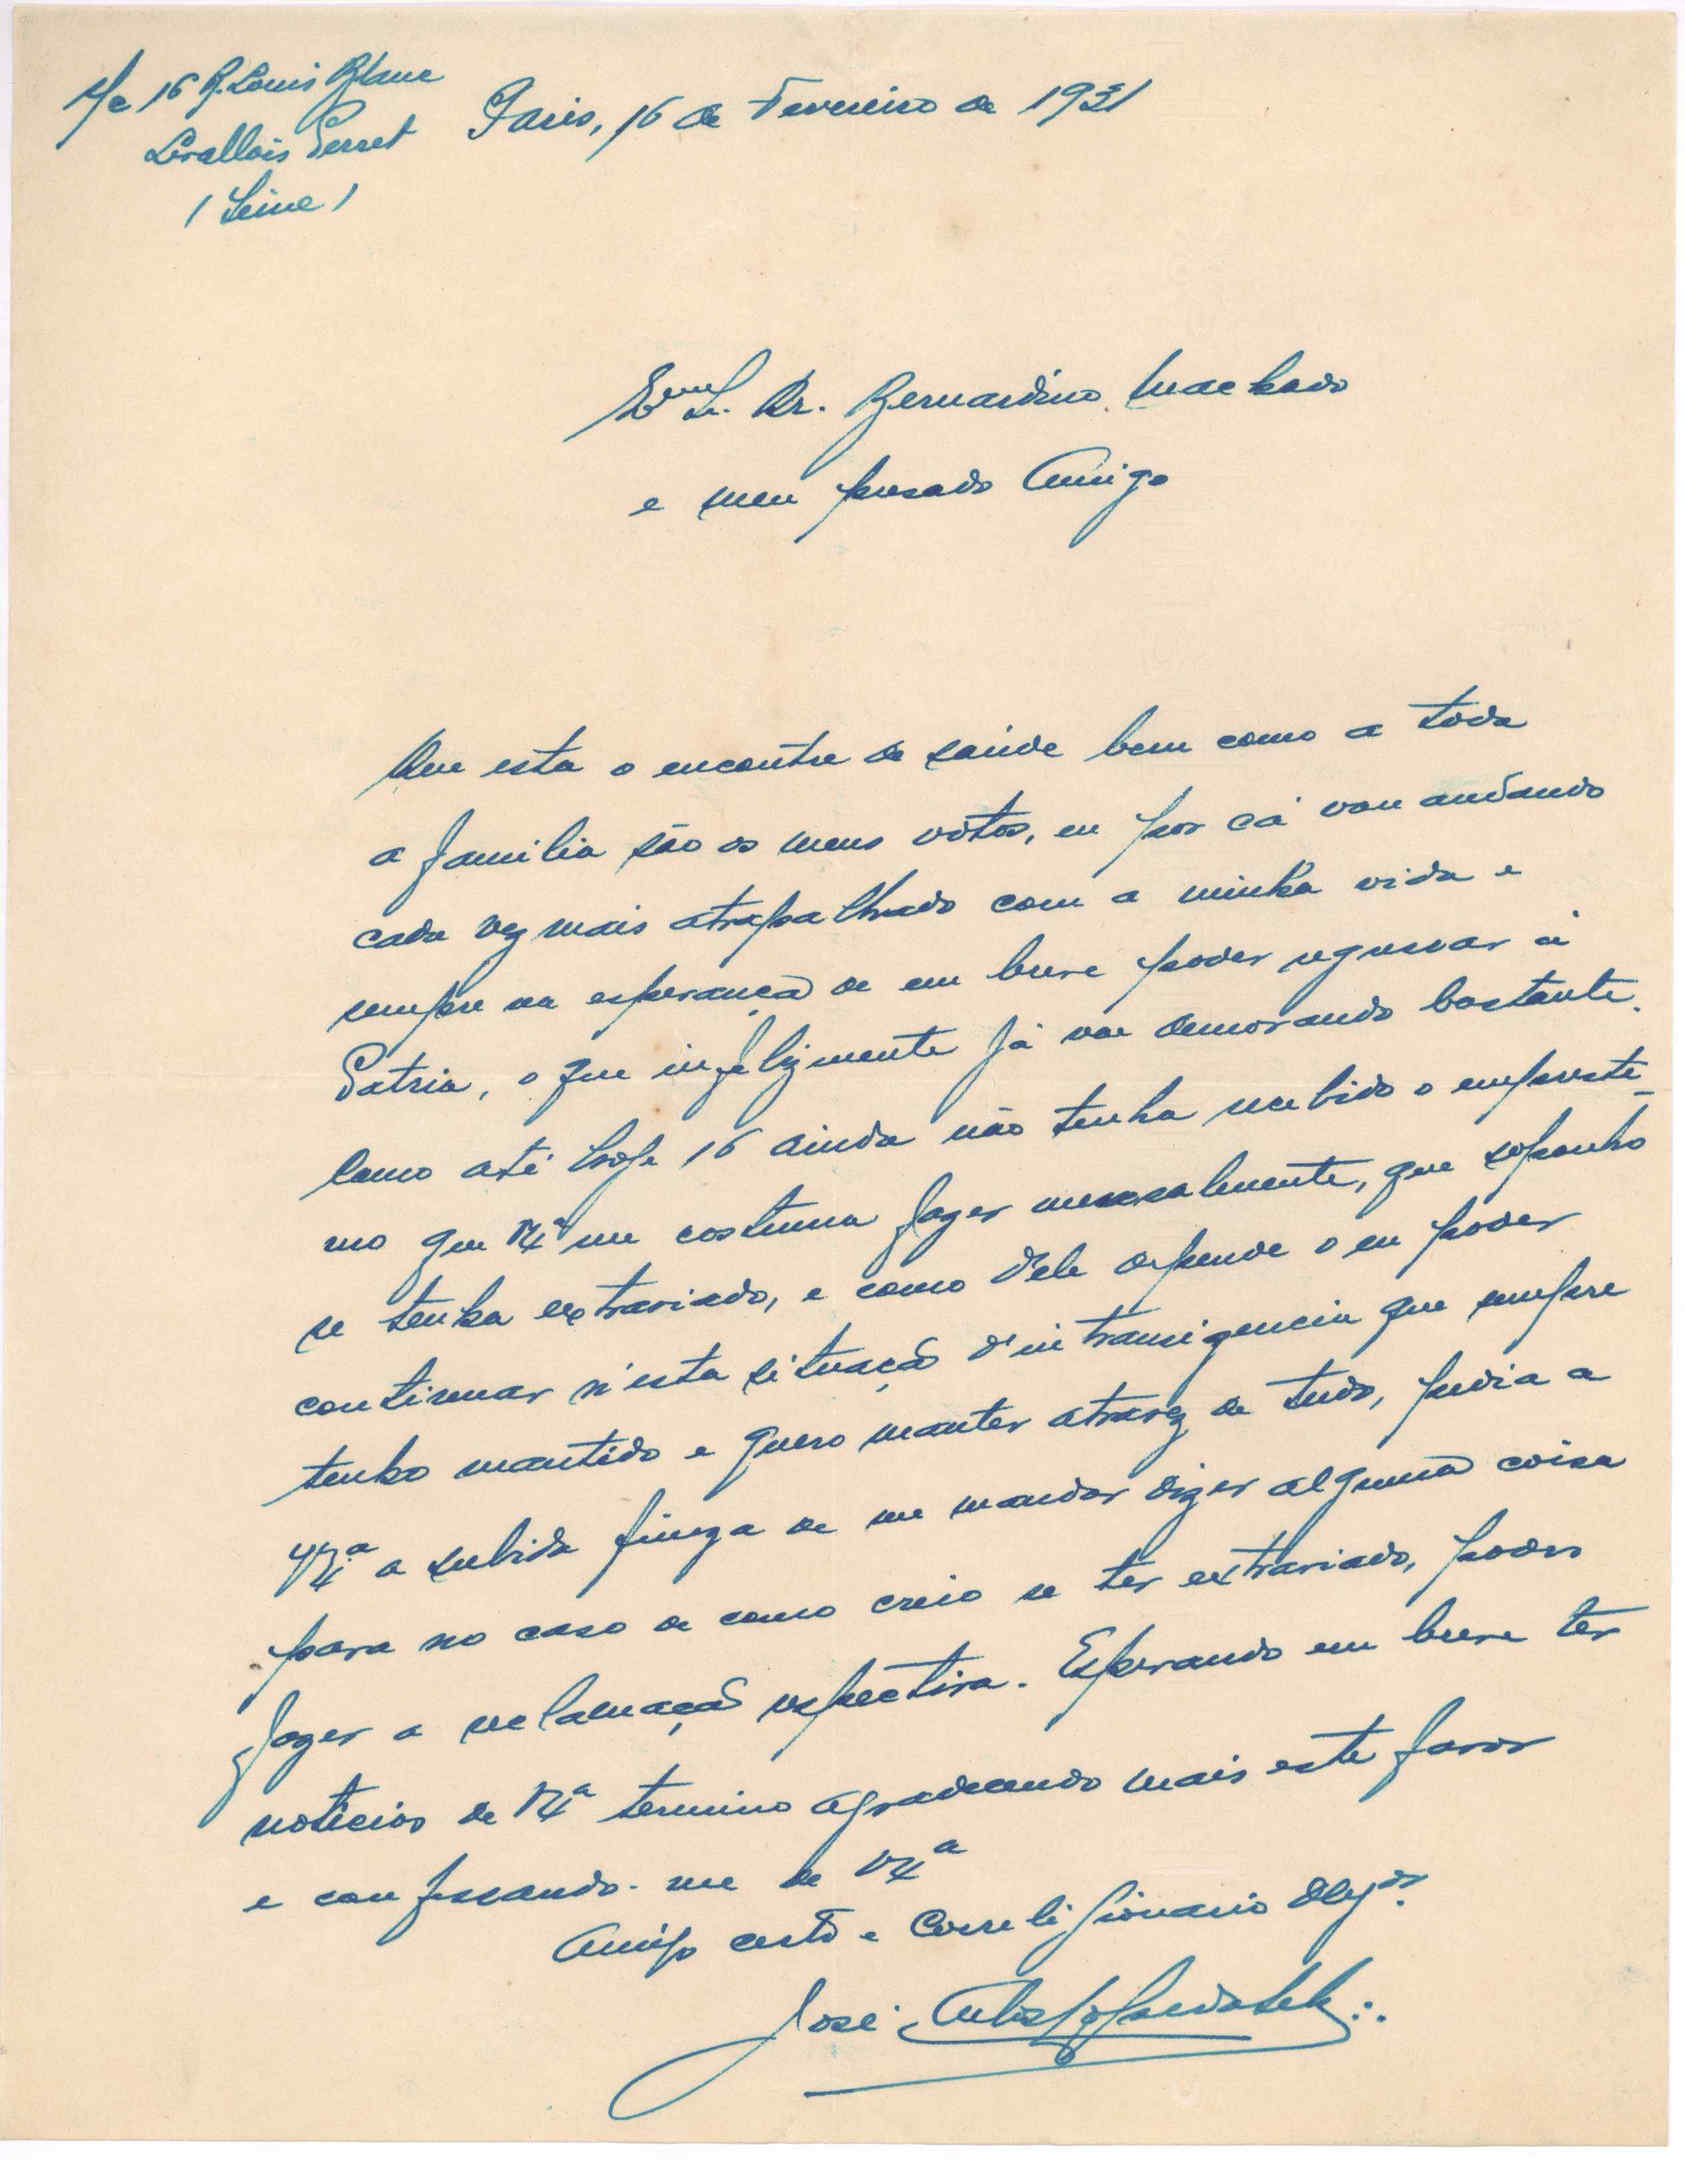 S/c 16 R. Louis Blanc
Levallois Perret
(Seine)
Paris, 16 de Fevereiro de 1931
Exmo Sr. Dr. Bernardino Machado
e meu presado Amigo
Que esta o encontre de saúde bem como a toda
a familia são os meus votos, eu por cá vou andando
cada vez mais atrapalhado com a minha vida e
sempre na esperança de em breve poder regressar á
Patria, o que infelizmente já vae demorando bastante.
Como até hoje 16 ainda não tenha recebido o empresti-
mo que V. Exª me costuma fazer mensalmente, que suponho
se tenha extraviado, e como d'ele depende o eu poder
continuar n'esta situação d'intransigencia que sempre
tenho mantido e quero manter atravez de tudo, pedia a
V. Exª a subida fineza de me mandar dizer alguma coisa
para no caso de como creio se ter extraviado, poder
fazer a reclamação respectiva. Esperando em breve ter
noticias de V. Exª termino agradecendo mais este favor
e confessando-me de V. Exª
Amigo certo e Correligionario
José